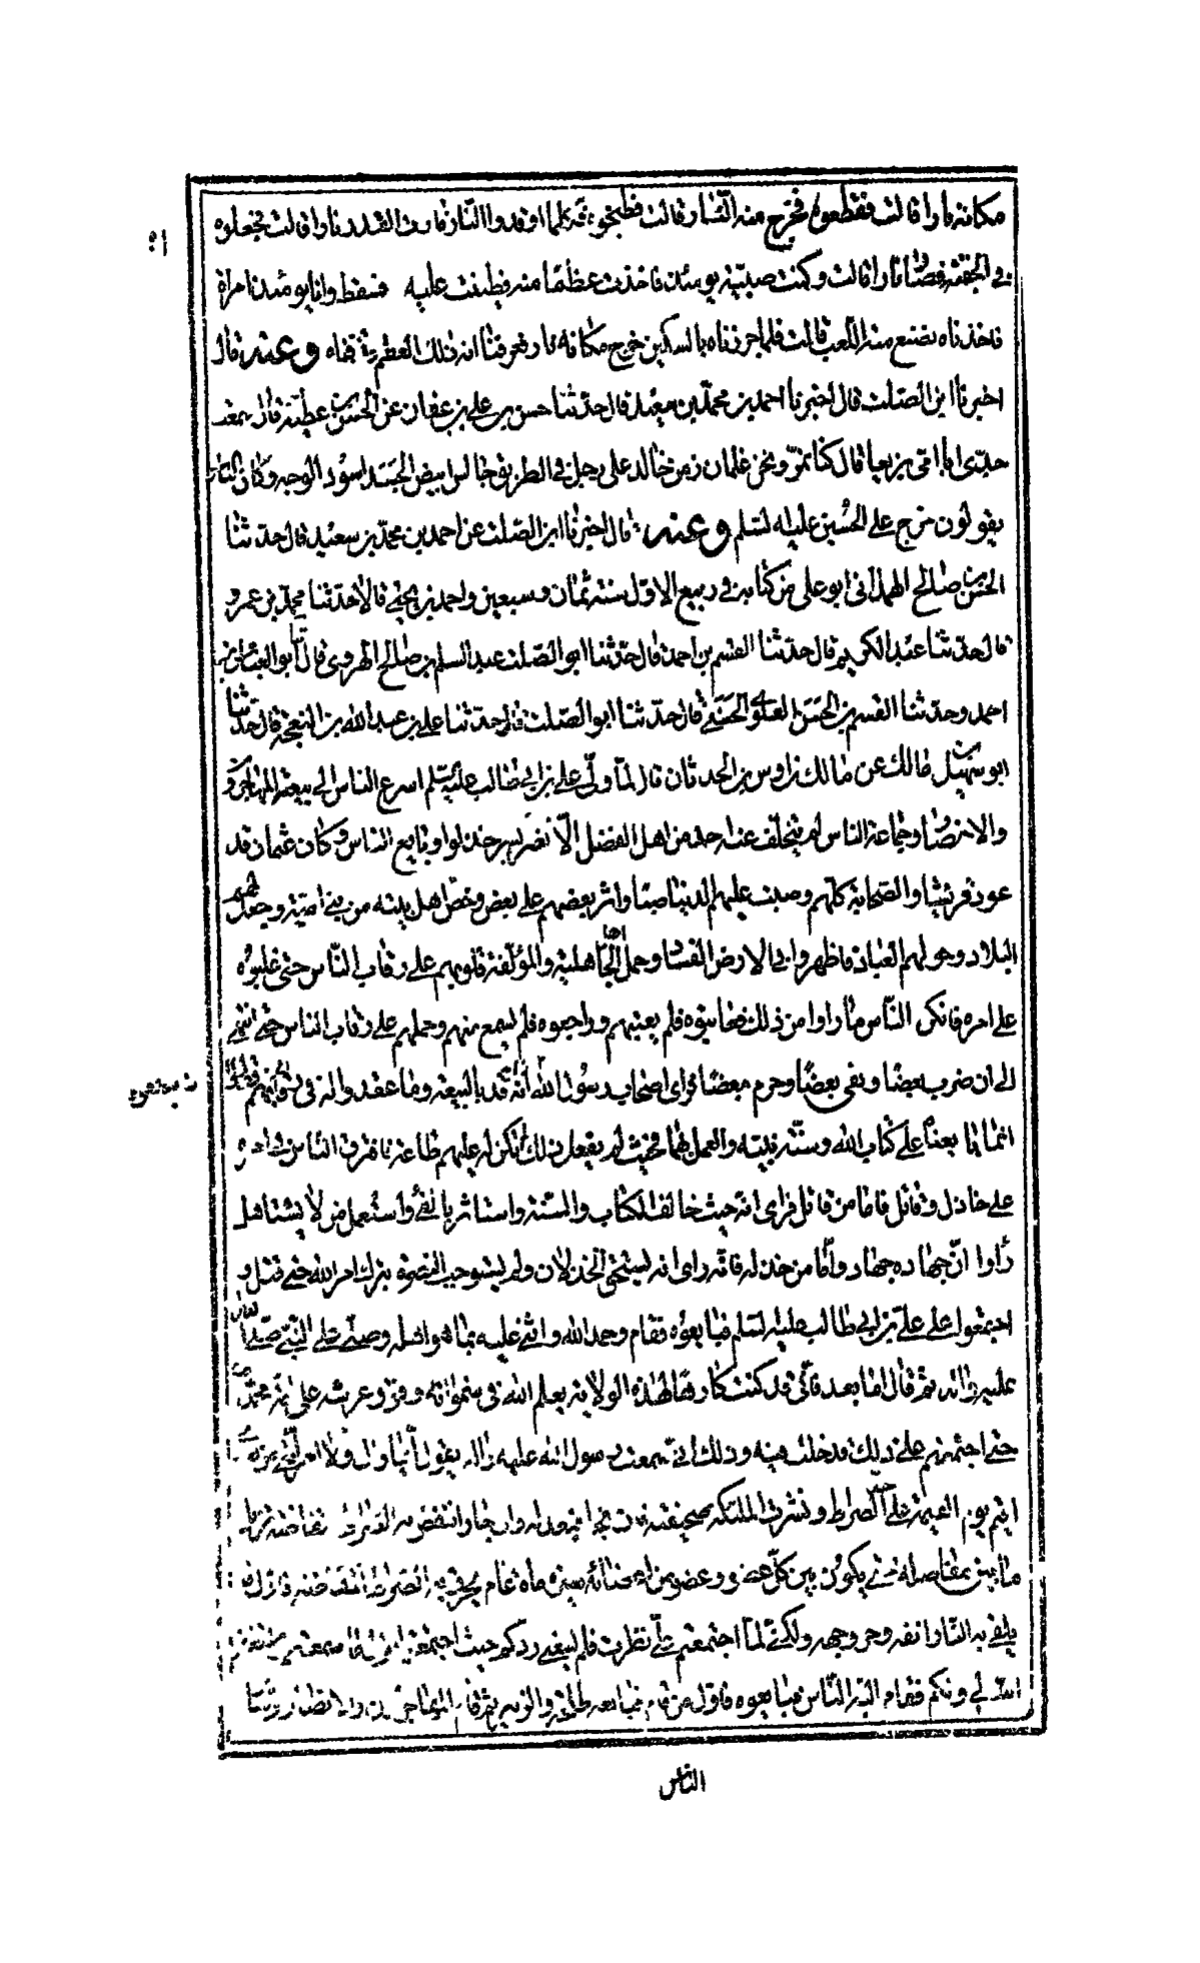 مكانه نارا قالت فقطعوه فخرج منه النار قالت فطبخوه فكلما اوقدوا النار فارت القدر نارا قالت فجعلوه
في الجفنة فصار نارا قالت وكنت صبية يومئذ فاخذت عظما منه فطينت عليه فسقط وانا يومئذ امراة
فاخذناه نصنع منه اللعب قالت فلما حززناه بالسكين خرج مكانه نار فعرفنا انه ذلك العظم فدفناه وعنه قال
اخبرنا ابن الصلت قال اخبرنا احمد بن محمد بن سعيد قال حدثنا حسن بن علي بن عفان عن الحسن بن عطية قال سمعت
جدي ابا امي بزيعا قال كنا نمر ونحن غلمان زمن خالد على رجل في الطريق جالس ابيض الجسد اسود الوجه وكان الناس
يقولون خرج على الحسين عليه السلم وعنه قال اخبرنا ابن الصلت عن احمد بن محمد بن سعيد قال حدثنا
الحسن بن صالح الهمداني ابو علي من كتابه في ربيع الاول سنة ثمان وسبعين واحمد بن يحيى قالا حدثنا محمد بن عمرو
قال حدثنا عبد الكريم قال حدثنا القسم بن احمد قال حدثنا ابو الصلت عبد السلم بن صالح الهروي قال ابو العباس
احمد وحدثنا القسم بن الحسن العلوي الحسني قال حدثنا ابو الصلت قال حدثنا علي بن عبد الله بن النعجة قال حدثنا
ابو سهيل بن مالك عن مالك بن اوس بن الحدثان قال لما ولي علي بن ابي طالب عليه السلم اسرع الناس الى بيعته المهاجرون
والانصار وجماعة الناس لم يتخلف عنه احد من اهل الفضل الا نفر يسير خذلوا وبايع الناس وكان عثمان قد
عود قريشا والصحابة كلهم وصبت عليهم الدنيا صبا واثر بعضهم على بعض وخص اهل بيته من بني امية وجعل لهم
البلاد وخولهم العباد فاظهروا في الارض الفساد وحمل اهل الجاهلية والمؤلفة قلوبهم على رقاب الناس حتى غلبوه
على امره فانكر الناس ما راوا من ذلك فعاتبوه فلم يعتبهم وراجعوه فلم يسمع منهم وحملهم على رقاب الناس حتى انتهى
الى ان ضرب بعضا ونفى بعضا وحرم بعضا فراى اصحاب رسول الله ان قد بالبيعة وما عقد واله في رقابهم
انما بايعنا على كتاب الله وسنة نبيه والعمل بهما فحيث لم يفعل ذلك لم تكن له عليهم طاعة فافترق الناس في امره
على خاذل وقاتل فاما من قاتل فراى انه حيث خالف الكتاب والسنة واستاثر بالفئ واستعمل من لا يستاهل
راوا ان جهاده جهاد واما من خذله فانه راى انه يستحق الخذلان ولم يستوجب النصرة بترك امر الله حتى قتل و
اجتمعوا على علي بن ابي طالب عليه السلم فبايعوه فقام وحمد الله واثنى عليه بما هو اهله وصلى على النبي
عليه واله ثم قال اما بعد فاني قد كنت كارها لهذه الولاية يعلم الله في سمواته وفوق عرشه على امة محمد
حتى اجتمعتم على ذلك فدخلت فيه وذلك اني سمعت رسول الله عليه واله يقول ايما وال ولي امر
اقيم يوم القيمة على حد الصراط ونشرت الملئكة صحيفته فان نجا فبعدله وان جار انتقض به الصراط
ما بين مفاصله حتى يكون بين كل عضو وعضو من اعضائه مسيرة ماة عام يخرق به الصراط
يلقى به النار انفه وحر وجهه ولكني لما اجتمعتم علي نظرت فلم يسعني ردكم حيث اجتمعتم
الله لي ولكم فقام اليه الناس فبايعوه فاول من قام فبايعه طلحة والزبير ثم قام المهاجرون والانصار وساير
الناس